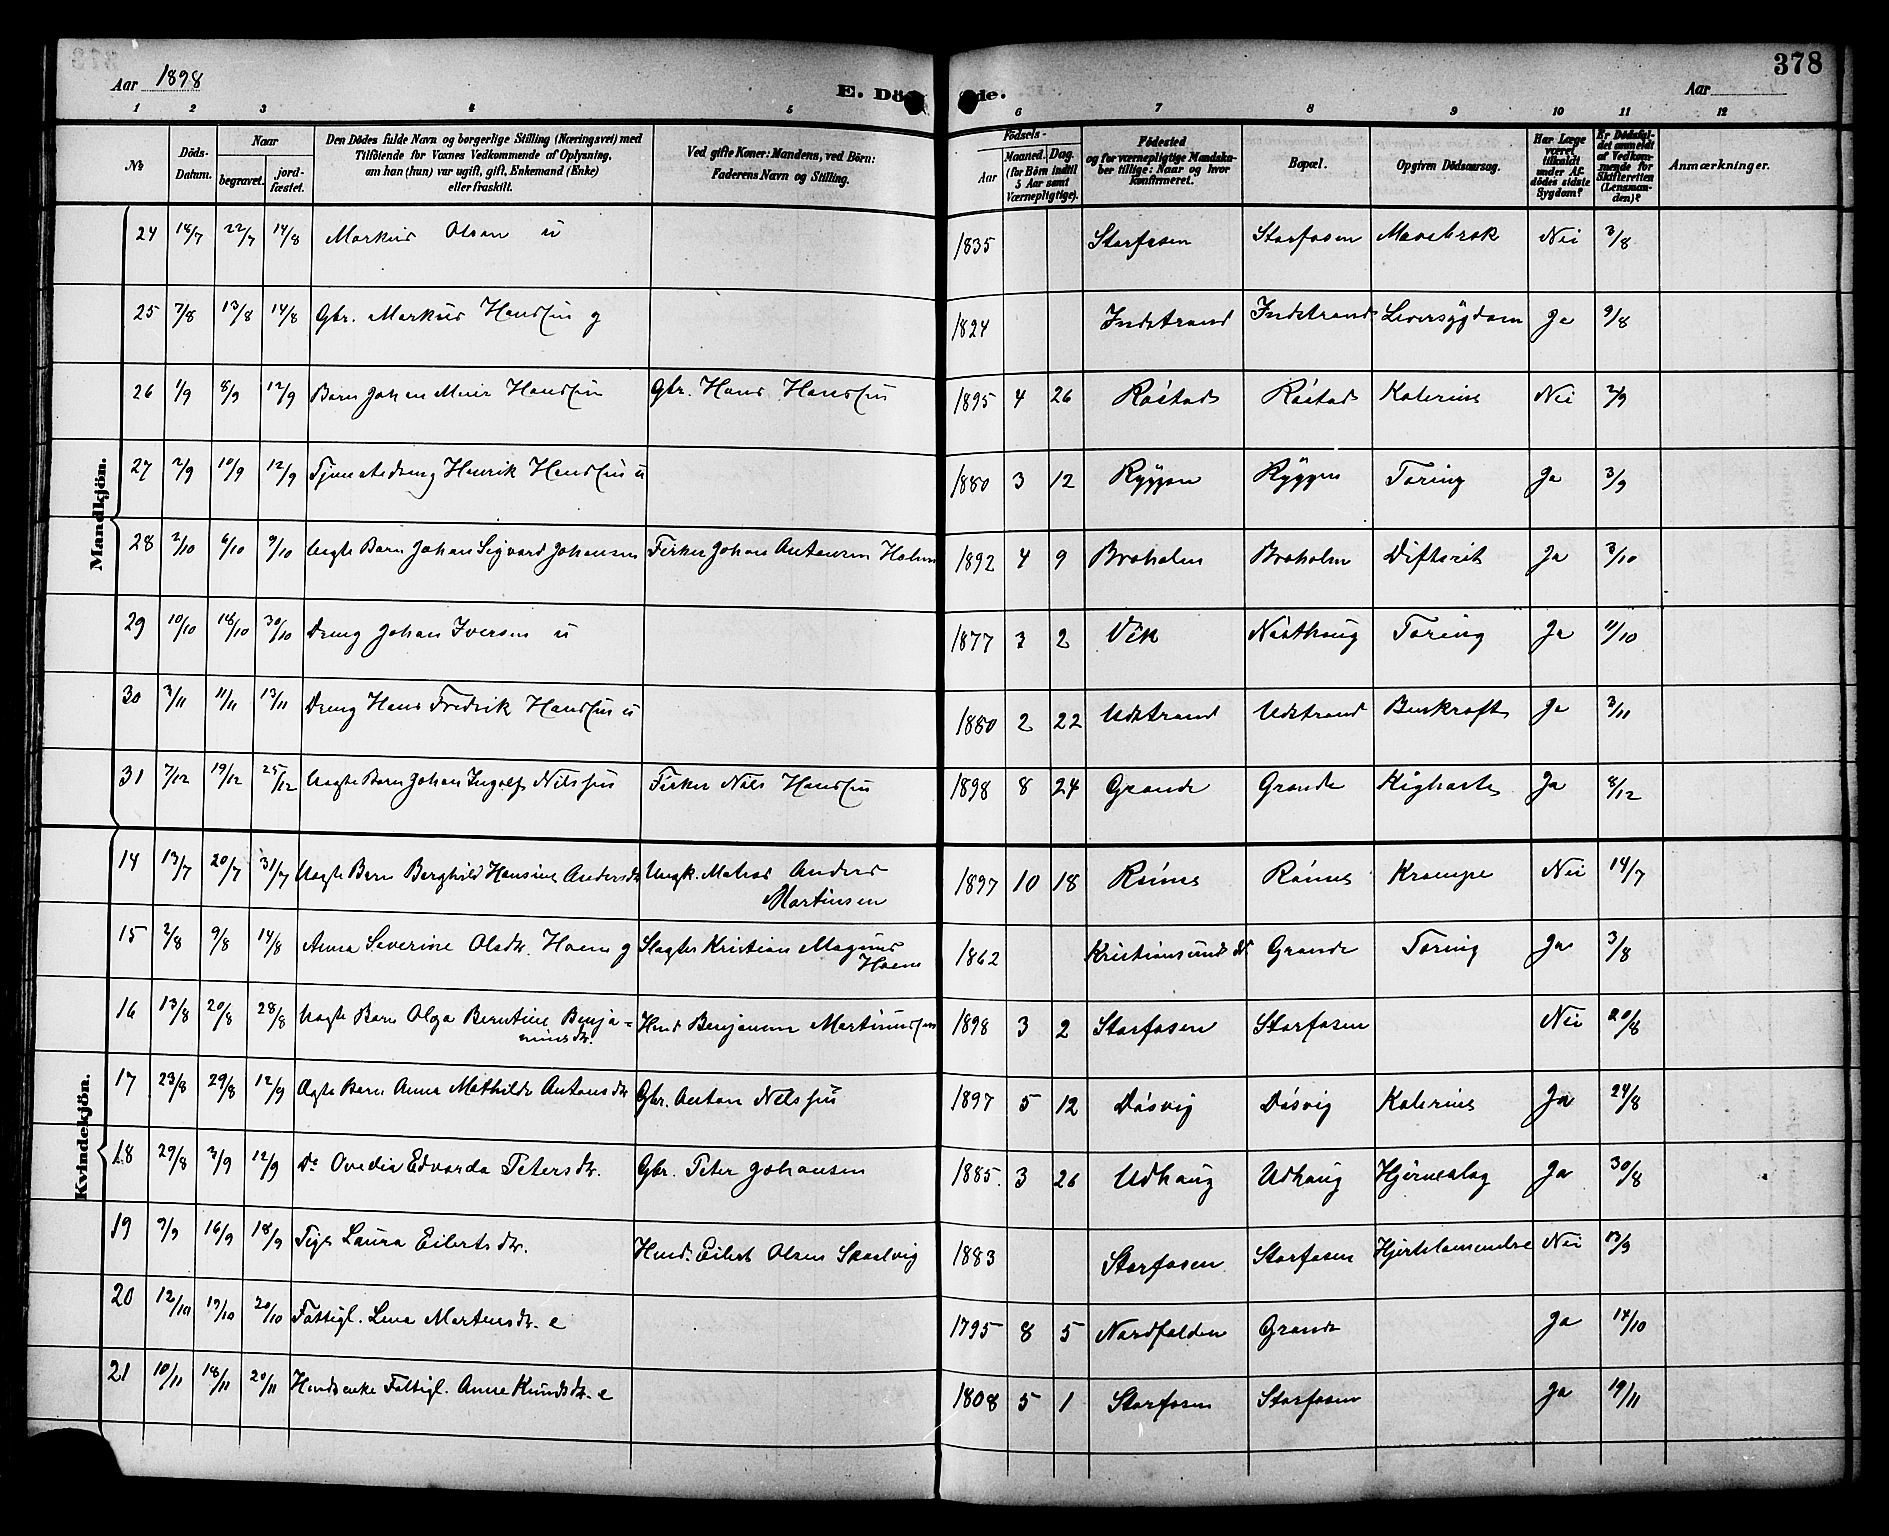 378
Aar 1898
E. Dö de.
Aar
1 2 3 4 5 6 7 8 9 10 11 12
No
Döds-Datum.
Naar
begravet.
jord-fæstet.
Den Dödes fulde Navn og borgerlige Stilling (Næringsvei) med
Tilföiende for Voxnes Vedkommende af Oplysning,
om han (hun) var ugift, gift, Enkemand (Enke)
eller fraskilt.
Ved gifte Koner: Mandens, ved Börn:
Faderens Navn og Stilling.
Födsels-
Aar
Maaned. Dag.
(for Börn indtil
5 Aar samt
Værnepligtige).
Födested
og for værnepligtige Mandska-
ber tillige: Naar og hvor
Konfirmeret.
Bopæl.
Opgiven Dödsaarsag.
Har Læge
været
tilkaldt
under Af-
dödes sidste
Sygdom?
Er Dödsfal-
det anmeldt
af Vedkom-
mende for
Skifteretten
(Lensman-
den)?
Anmærkninger.
Mandkjön.
24 18/7 22/7 14/8 Markus Olsen u 1835 Storfosen Storfosen Mavebrok Nei 3/8
25 7/8 13/8 14/8 Gbr. Markus Hansen g 1824 Indstrand Indstrand Leversygdom Ja 9/8
26 1/9 8/9 12/9 Barn Johan Meier Hansen Gbr. Hans Hansen 1895 4 26 Röstad Röstad Kolerine Nei 2/9
27 2/9 10/9 12/9 Tjenestedreng Henrik Hansen u 1880 3 12 Ryggen Ryggen Tæring Ja 3/9
28 2/10 6/10 9/10 Uægte Barn Johan Sigvard Johansen Fisker Johan Antonsen Holm 1892 4 9 Broholm Broholm Difterit Ja 3/10
29 10/10 18/10 30/10 Dreng Johan Iversen u 1877 3 2 Vik Nösthaug Tæring Ja 11/10
30 3/11 11/11 13/11 Dreng Hans Fredrik Hansen u 1880 2 22 Udstrand Udstrand Benkræft Ja 3/11
31 7/12 19/12 25/12 Uægte Barn Johan Ingolf Nilssen Fisker Nils Hansen 1898 8 24 Grande Grande Kighoste Ja 8/12
Kvindekjön.
14 13/7 20/7 31/7 Uægte Barn Borghild Hansine Andersdr. Ungk. Matros Anders
Martinsen 1897 10 18 Rönne Rönne Krampe Nei 14/7
15 2/8 9/8 14/8 Anna Severine Olsdr. Hoem g Slagter Kristian Magnus
Hoem 1862 Kristianssund N Grande Tæring Ja 3/8
16 13/8 20/8 28/8 Uægte Barn Olga Berntine Benja=
minsdr. Hmd. Benjamin Martinussen 1898 3 2 Storfosen Storfosen Nei 20/8
17 23/8 29/8 12/9 Ægte Barn Anna Mathilde Antonsdr. Gbr. Anton Nilssen 1897 5 12 Døsvig Døsvig Kolerine Ja 24/8
18 29/8 3/9 12/9 Do Ovedia Edvarda Petersdr. Gbr. Peter Johansen 1885 3 26 Udhaug Udhaug Hjerneslag Ja 30/8
19 9/9 16/9 18/9 Pige Laura Eilertsdr. Hmd. Eilert Olsen Skaalvig 1883 Storfosen Storfosen Hjertelammelse Nei 13/9
20 12/10 19/10 20/10 Fattigl. Lena Martensdr. e 1795 8 5 Nordfolden Grande Ja 14/10
21 10/11 18/11 20/11 Hmdsenke Fattigl. Anne Knudsdr. e 1808 5 1 Storfosen Storfosen Ja 19/11